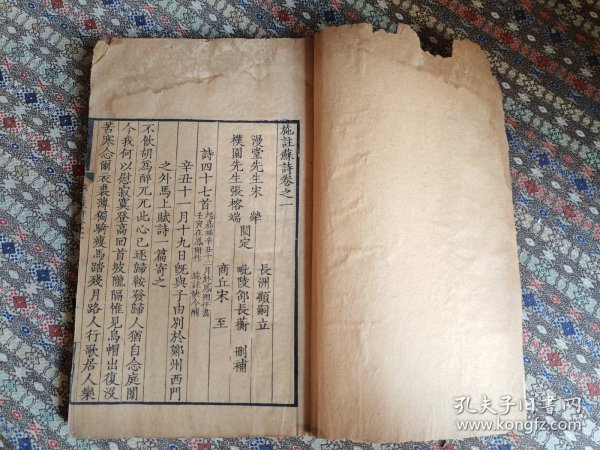 施註蘇詩卷之一
漫堂先生宋犖
樸園先生張榕端 閱定
長洲顧嗣立
毗陵邵長蘅 刪補
商丘宋至
詩四十七首
辛丑十一月十九日旣與子由別於鄭州西門
之外馬上賦詩一篇寄之
不飲胡爲醉兀兀此心已逐歸鞍發歸人猶自念庭闈
今我何以慰寂寞登高回首坡隴隔惟見烏帽出復沒
苦寒念爾衣裘薄獨騎瘦馬踏殘月路人行歌居人樂
孔夫子旧書网
www.kongfz.com